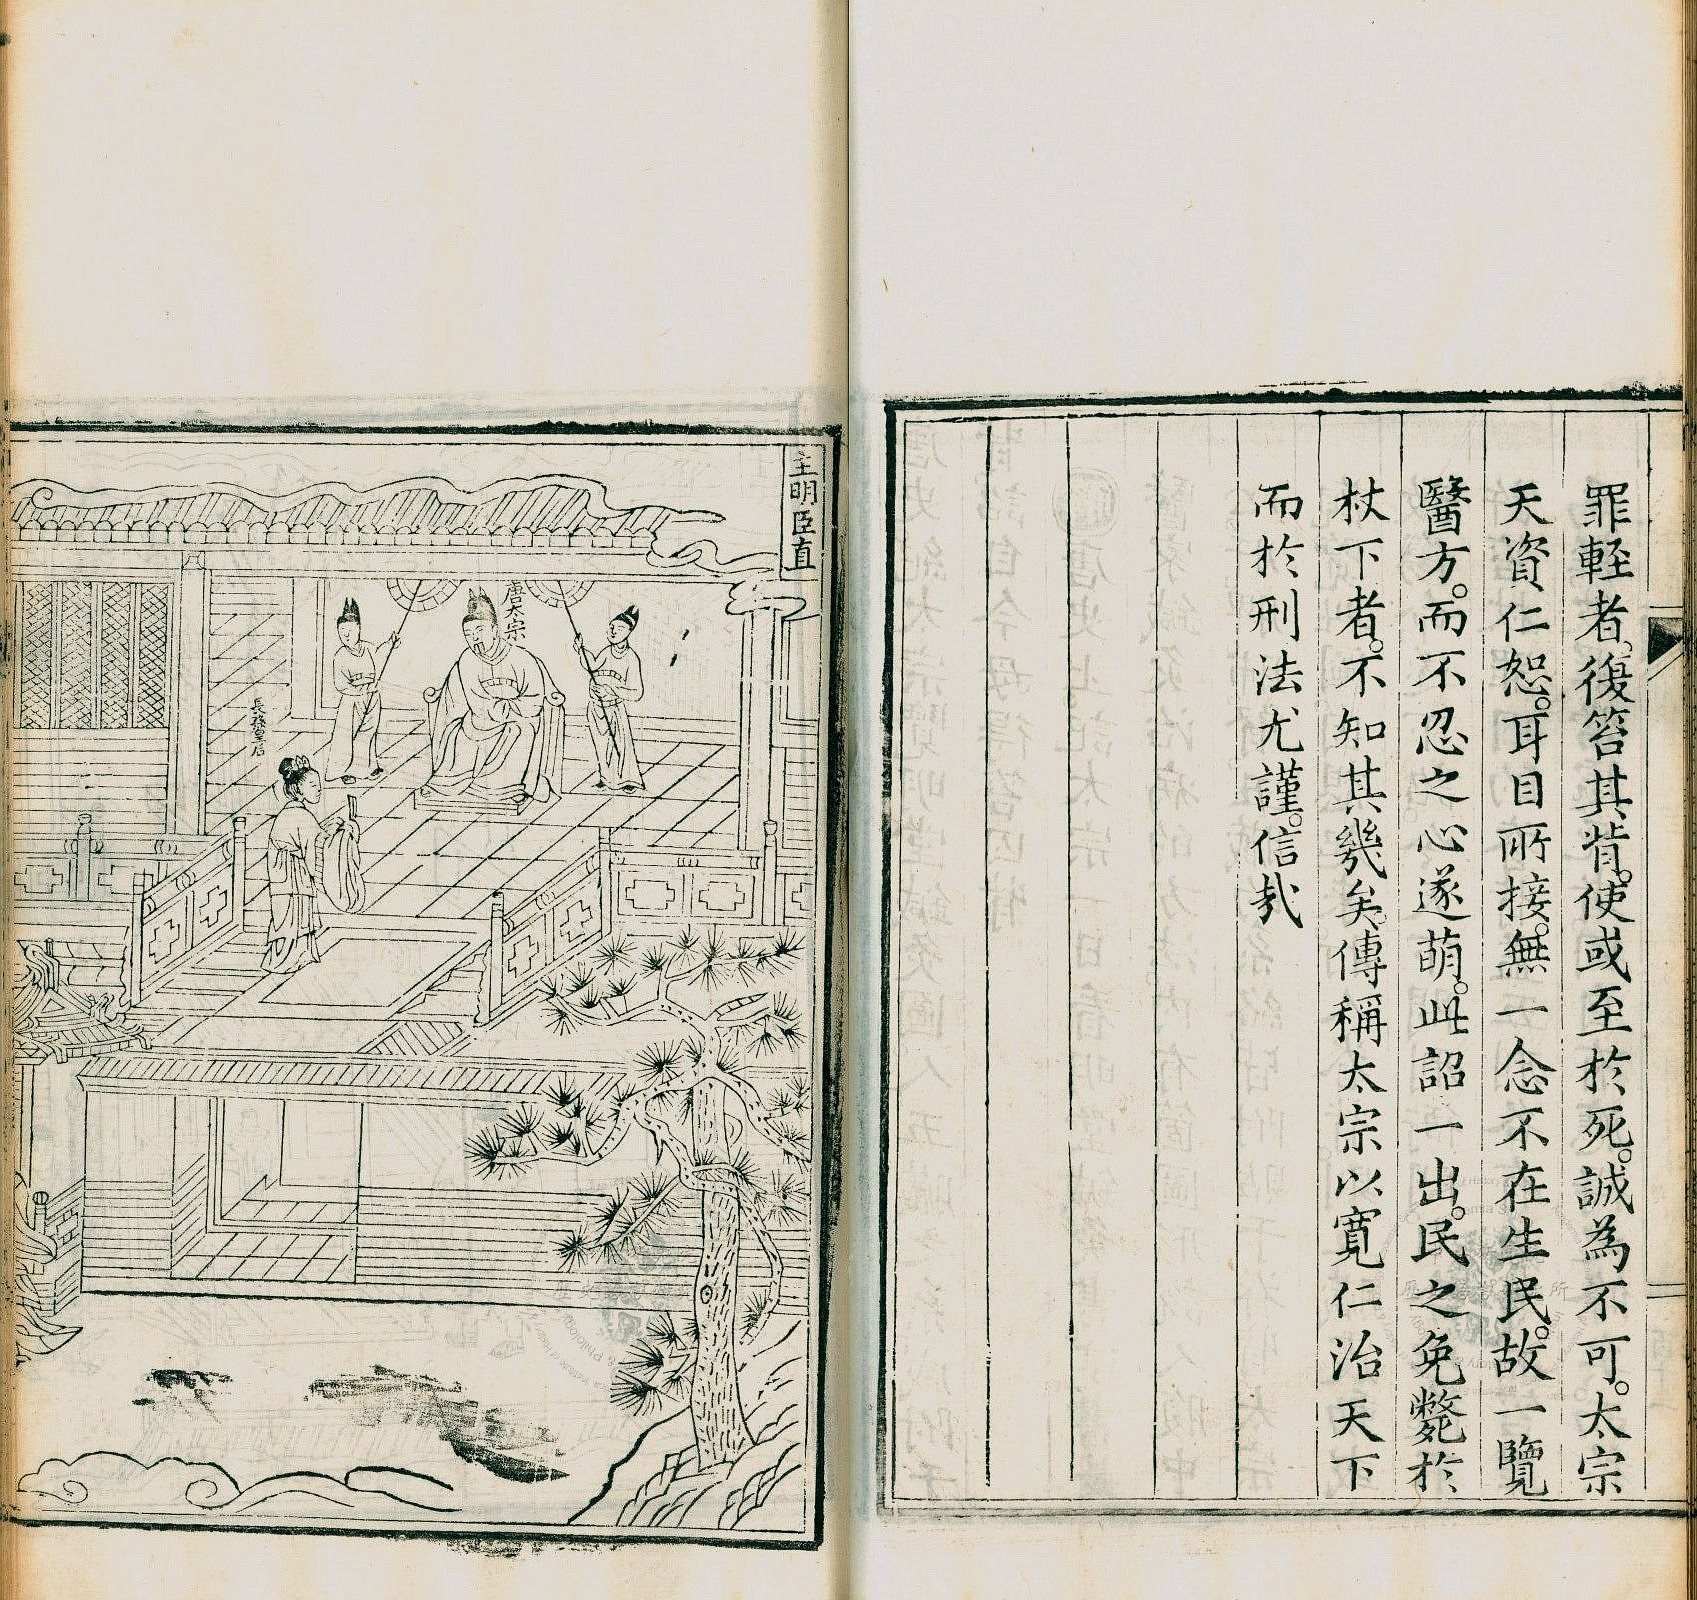 罪輕者。復笞其背。使或至於死。誠為不可。太宗
天資仁恕。耳目所接。無一念不在生民。故一覽
醫方。而不忍之心遂萌。此詔一出。民之免斃於
杖下者。不知其幾矣。傳稱太宗以寬仁治天下
而於刑法尤謹。信哉
主明臣直
唐太宗
長孫皇后